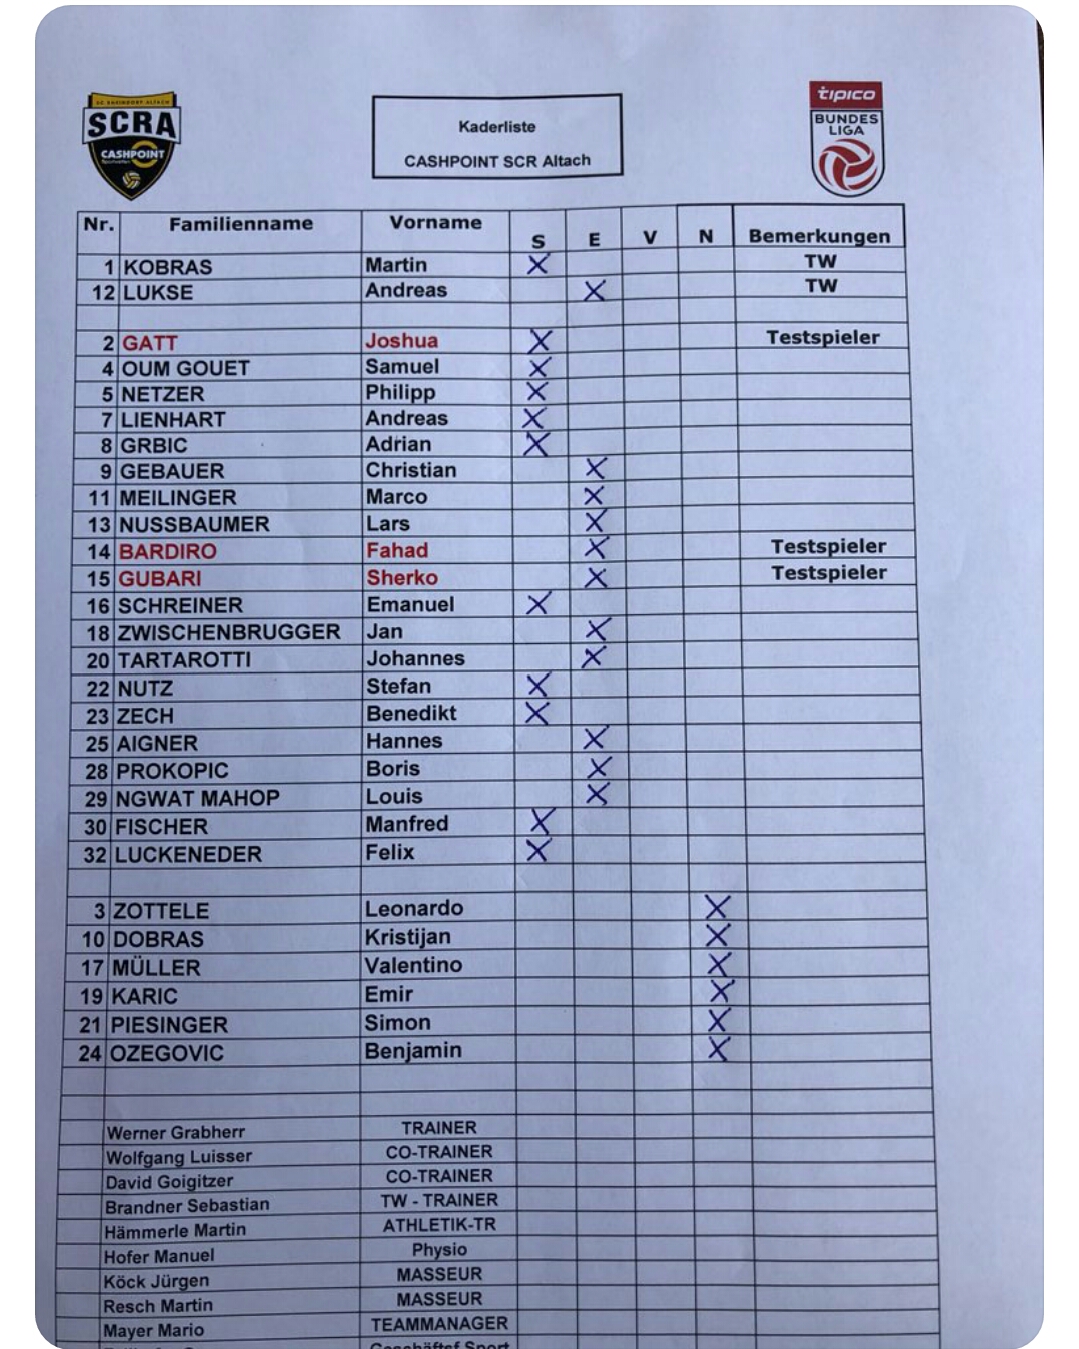 SCRA
CASHPOINT
Kaderliste
CASHPOINT SCR Altach
tipico
BUNDES
LIGA
Nr. Familienname Vorname S E V N Bemerkungen
1 KOBRAS Martin X TW
12 LUKSE Andreas X TW
2 GATT Joshua X Testspieler
4 OUM GOUET Samuel X
5 NETZER Philipp X
7 LIENHART Andreas X
8 GRBIC Adrian X
9 GEBAUER Christian X
11 MEILINGER Marco X
13 NUSSBAUMER Lars X
14 BARDIRO Fahad X Testspieler
15 GUBARI Sherko X Testspieler
16 SCHREINER Emanuel X
18 ZWISCHENBRUGGER Jan X
20 TARTAROTTI Johannes X
22 NUTZ Stefan X
23 ZECH Benedikt X
25 AIGNER Hannes X
28 PROKOPIC Boris X
29 NGWAT MAHOP Louis X
30 FISCHER Manfred X
32 LUCKENEDER Felix X
3 ZOTTELE Leonardo X
10 DOBRAS Kristijan X
17 MÜLLER Valentino X
19 KARIC Emir X
21 PIESINGER Simon X
24 OZEGOVIC Benjamin X
Werner Grabherr TRAINER
Wolfgang Luisser CO-TRAINER
David Goigitzer CO-TRAINER
Brandner Sebastian TW - TRAINER
Hämmerle Martin ATHLETIK-TR
Hofer Manuel Physio
Köck Jürgen MASSEUR
Resch Martin MASSEUR
Mayer Mario TEAMMANAGER
Geschäftsf Sport